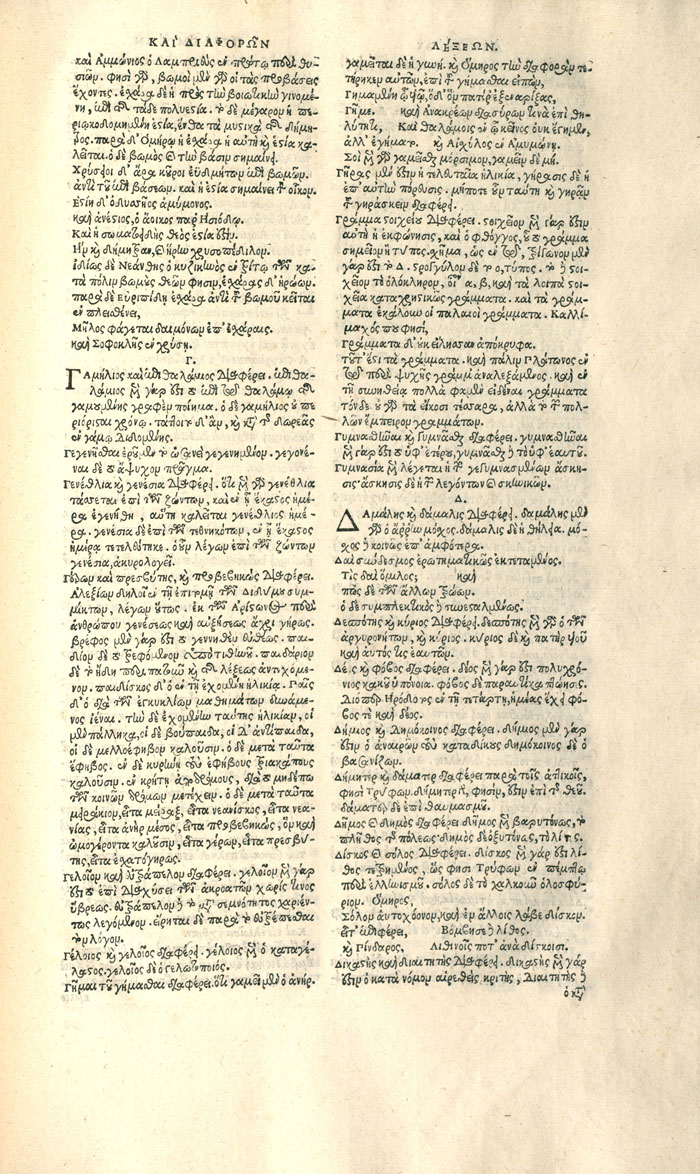 ΚΑΙ ΔΙΑΦΟΡΩΝ
καὶ Ἀμμώνιος ὁ Λαμπριεὺς ἐν πρώτῳ περὶ θυ-
σιῶν. φησὶ γὰρ, βωμοὶ μὲν γὰρ οἱ τὰς προβάσεις
ἔχοντες. ἐχάρα δὲ ἡ πρὸς τὴν βοιωτικὴν γινομέ-
νη, ἐπὶ τάδε πολυεστία. τὸ δὲ μέγαρον ἡ πε-
ριῳκοδομημένη ἑστία, ἔνθα τὰ μυστικὰ τῆς δήμη-
τρος. παρὰ δ' Ὁμήρῳ ἡ ἐχάρα ἡ αὐτὴ καὶ ἑστία κα-
λεῖται. ὁ δὲ βωμὸς τὴν βάσιν σημαίνει.
Χρύσειοι δ' ἄρα κοῦροι ἐϋδμήτων ἐπὶ βωμῶν.
ἀντὶ τοῦ ἐπὶ βάσεων. καὶ ἡ ἑστία σημαίνει τὸν οἶκον.
Ἑστίη δ' ὀδυσῆος ἀμύμονος.
καὶ ἀνέστιος, ὁ ἄοικος παρ' Ἡσιόδῳ.
Καὶ ἡ σωματοειδὴς θεὸς ἑστία ἐστιν.
Ἥρην καὶ δήμητραν, καὶ ἥρην χρυσοπέδιλον.
ἰδίως δὲ Νεάνθης ὁ κυζικηνὸς ἐν ἕκτῳ τῶν κα-
τὰ πόλιν βωμοὺς θεῶν φησιν, ἐχάρας δ' ἡρώων.
παρὰ δὲ Εὐριπίδῃ ἐχάρα ἀντὶ τοῦ βωμοῦ κεῖται
ἐν πλεισθένει,
Μῆλος φάγεται δαιμόνων ἐπ' ἐχάραις.
καὶ Σοφοκλῆς ἐν χρύσῃ.
Γ.
ΓΑμήλιος καὶ ἐπιθαλάμιος διαφέρει. ἐπιθα-
λάμιος μὲν γάρ ἐστι τὸ ἐπὶ τῷ θαλάμῳ τῆς
γαμουμένης γραφὲν ποίημα. ὁ δὲ γαμήλιος οὐ πε-
ριόρισται χρόνῳ. τάττοιτο δ' ἂν, καὶ ἐπὶ τῆς δωρεᾶς
ἐν γάμῳ διδομένης.
Γεγενῆσθαι ἐροῦμεν τὸ ὡσανεὶ γεγενημένον. γεγονέ-
ναι δὲ τὸ ἄψυχον πρᾶγμα.
Γενέθλια καὶ γενέσια διαφέρει. ὅτι μὲν γὰρ γενέθλια
τάσσεται ἐπὶ τῶν ζώντων, καὶ ἐν ᾗ ἕκαστος ἡμέ-
ρᾳ ἐγενήθη, αὕτη καλεῖται γενέθλιος ἡμέ-
ρα. γενέσια δὲ ἐπὶ τῶν τεθνηκότων, ἐν ᾗ ἕκαστος
ἡμέρᾳ τετελεύτηκε. ὁ οὖν λέγων ἐπὶ τῶν ζώντων
γενέσια, ἀκυρολογεῖ.
Γέρων καὶ πρεσβύτης, καὶ προβεβηκὼς διαφέρει.
Ἀλεξίων δηλοῖ ἐν τῇ ἐπιτομῇ τῶν Διδύμου συμ-
μίκτων, λέγων οὕτως. ἐκ τῶν Ἀριστωνος περὶ
ἀνθρώπου γενέσεως καὶ αὐξήσεως ἄχρι γήρως.
βρέφος μὲν γάρ ἐστι τὸ γεννηθὲν εὐθέως. παι-
δίον δὲ τὸ τρεφόμενον ὑπὸ τιθηνοῦ. παιδάριον
δὲ τὸ ἤδη περιπατοῦν καὶ τῆς λέξεως ἀντεχόμε-
νον. παιδίσκος δ' ὁ ἐν τῇ ἐχομένῃ ἡλικίᾳ. παῖς
δ' ὁ διὰ τῶν ἐγκυκλίων μαθημάτων δυνάμε-
νος ἰέναι. τὴν δὲ ἐχομένην ταύτης ἡλικίαν, οἱ
μὲν πάλληκα, οἱ δὲ βούπαιδα, οἱ δ' ἀντίπαιδα,
οἱ δὲ μελλοέφηβον καλοῦσιν. ὁ δὲ μετὰ ταῦτα
ἔφηβος. ἐν δὲ κυρήνῃ τοὺς ἐφήβους τριακαπους
καλοῦσιν. ἐν κρήτῃ ἀποδρόμους, διὰ τὸ μηδέπω
τῶν κοινῶν δρόμων μετέχειν. ὁ δὲ μετὰ ταῦτα
μειράκιον, εἶτα μεῖραξ, εἶτα νεανίσκος, εἶτα νεα-
νίας, εἶτα ἀνὴρ μέσος, εἶτα προβεβηκὼς, ὃν καὶ
ὠμογέροντα καλοῦσιν, εἶτα γέρων, εἶτα πρεσβύ-
της, εἶτα ἐσχατόγηρως.
Γελοῖον καὶ εὐτράπελον διαφέρει. γελοῖον μὲν γάρ
ἐστι τὸ ἐπὶ διαχύσει τῶν ἀκροατῶν χωρίς τινος
ὕβρεως. εὐτράπελον τὸ μετὰ σεμνότητος χαριέν-
τως λεγόμενον. εἴρηται δὲ παρὰ τὸ εὖ τρέπεσθαι
τὸν λόγον.
Γέλοιος καὶ γελοῖος διαφέρει. γέλοιος μὲν ὁ καταγέ-
λαστος. γελοῖος δὲ ὁ γελωτοποιός.
Γῆμαι τοῦ γήμασθαι διαφέρει. ὅτι γαμεῖ μὲν ὁ ἀνήρ.
ΛΕΞΕΩΝ.
γαμεῖται δὲ ἡ γυνή. καὶ Ὅμηρος τὴν διαφορὰν τε-
τήρηκεν αὐτῶν, ἐπὶ τοῦ γήμασθαι εἰπών,
Γημαμένη ᾧ υἷι, ὁ δ' ὃν πατέρ' ἐξεναρίξας,
Γῆμε. καὶ Ἀνακρέων διασύρων τινὰ ἐπὶ θη-
λύτητι, Καὶ θάλαμος ἐν ᾧ κεῖνος οὐκ ἔγημεν,
ἀλλ' ἐγήματο. καὶ Αἰσχύλος ἐν Ἀμυμώνῃ.
Σοὶ μὲν γαμεῖσθαι μόρσιμον, γαμεῖν δὲ μή.
Γῆρας μέν ἐστιν ἡ τελευταία ἡλικία, γήρασις δὲ ἡ
ἐπ' αὐτὴν πόρευσις. μήποτε οὖν ταύτῃ καὶ γηρᾶν
τοῦ γηράσκειν διαφέρει.
Γράμμα στοιχείου διαφέρει. στοιχεῖον μὲν γάρ ἐστιν
αὐτὴ ἡ ἐκφώνησις, καὶ ὁ φθόγγος, οὗ τὸ γράμμα
σημεῖον ἢ τύπος. σχῆμα, ὡς ἐν τῷ, τρίγωνον μὲν
γάρ ἐστι τὸ Δ. στρογγύλον δὲ τὸ ο, τύπος. τὸ δὲ στοι-
χεῖον τὸ ὁλόκληρον, οἷον α, β, καὶ τὰ λοιπὰ στοι-
χεῖα καταχρηστικῶς γράμματα. καὶ τὰ γράμ-
ματα ἐκάλουν οἱ παλαιοὶ γράμματα. Καλλί-
μαχός που φησὶ,
Γράμματα δ' οὐκ εἵλησσεν ἀπόκρυφα.
τοῦτ' ἔστι τὰ γράμματα. καὶ πάλιν Πλάτωνος ἐν
τῷ περὶ ψυχῆς γράμμ' ἀναλεξάμενος. καὶ ἐν
τῇ συνηθείᾳ πολλὰ φαμὲν εἰδέναι γράμματα
τόνδε οὐ τὰ εἴκοσι τέσσαρα, ἀλλὰ τὸν πολ-
λῶν ἔμπειρον γραμμάτων.
Γυμνασθῆναι καὶ γυμνᾶσθαι διαφέρει. γυμνασθῆναι
μὲν γάρ ἐστι τὸ ὑφ' ἑτέρου, γυμνᾶσθαι τὸ ὑφ' ἑαυτοῦ.
Γυμνασία μὲν λέγεται ἡ τῶν γεγυμνασμένων ἄσκη-
σις· ἄσκησις δὲ ἡ τῶν λεγόντων
Δ.
ΔΑμάλης καὶ δάμαλις διαφέρει. δαμάλης μὲν
γὰρ ὁ ἄρρην μόσχος. δάμαλις δὲ ἡ θήλεια. μό-
σχος δὲ κοινῶς ἐπ' ἀμφότερα.
Δαὶ σύνδεσμος ἐρωτηματικῶς ἐκτιταμένος.
Τὶς δαὶ ὅμιλος; καὶ
πᾶς δὲ τῶν ἄλλων ζώων.
ὁ δὲ συμπλεκτικὸς συνεσταλμένως.
Δεσπότης καὶ κύριος διαφέρει. δεσπότης μὲν γὰρ ὁ τῶν
ἀργυρωνήτων, καὶ κύριος. κύριος δὲ καὶ πατὴρ υἱοῦ
καὶ αὐτὸς τίς ἑαυτῶν.
Δέος καὶ φόβος διαφέρει. δέος μὲν γάρ ἐστι πολυχρό-
νιος κακοῦ ὑπόνοια. φόβος δὲ παραυτίκα πτόησις.
Διόπερ Ἡρόδοτος ἐν τῇ τετάρτῃ, ἡμέας ἔχει φό-
βος τὲ καὶ δέος.
Δήμιος καὶ Δημόκοινος διαφέρει. δήμιος μὲν γάρ
ἐστιν ὁ ἀναιρῶν τοὺς καταδίκους δημόκοινος δὲ ὁ
βασανίζων.
Δημήτηρ καὶ δαμάτηρ διαφέρει παρὰ τοῖς ἀττικοῖς,
φησὶ Τρύφων. Δημήτηρ, φησιν, ἐστιν ἐπὶ τῆς θεοῦ.
δαμάτηρ δὲ ἐπὶ θαυμασμοῦ.
Δῆμος καὶ δημὸς διαφέρει δῆμος μὲν βαρυτόνως, τὸ
πλῆθος τῆς πόλεως δημὸς δὲ ὀξυτόνως, τὸ λίπος.
Δίσκος καὶ σόλος διαφέρει. δίσκος μὲν γάρ ἐστι λί-
θος τετρημένος, ὥς φησι Τρύφων ἐν πέμπτῳ
περὶ ἑλληνισμοῦ. σόλος δὲ τὸ χαλκοῦν ὁλοσφύ-
ριον. Ὅμηρος,
Σόλον αὐτοχόωνον, καὶ ἐν ἄλλοις λάβε δίσκον.
εἶτ' ἐπιφέρει, Βόμβησε δ λίθος.
καὶ Πίνδαρος, Λιθίνοις ποτ' ἀνὰ δίσκοισι.
Δικαστὴς καὶ διαιτητὴς διαφέρει. δικαστὴς μὲν γάρ
ἐστιν ὁ κατὰ νόμον αἱρεθεὶς κριτὴς, Διαιτητὴς δὲ
ὁ κατὰ